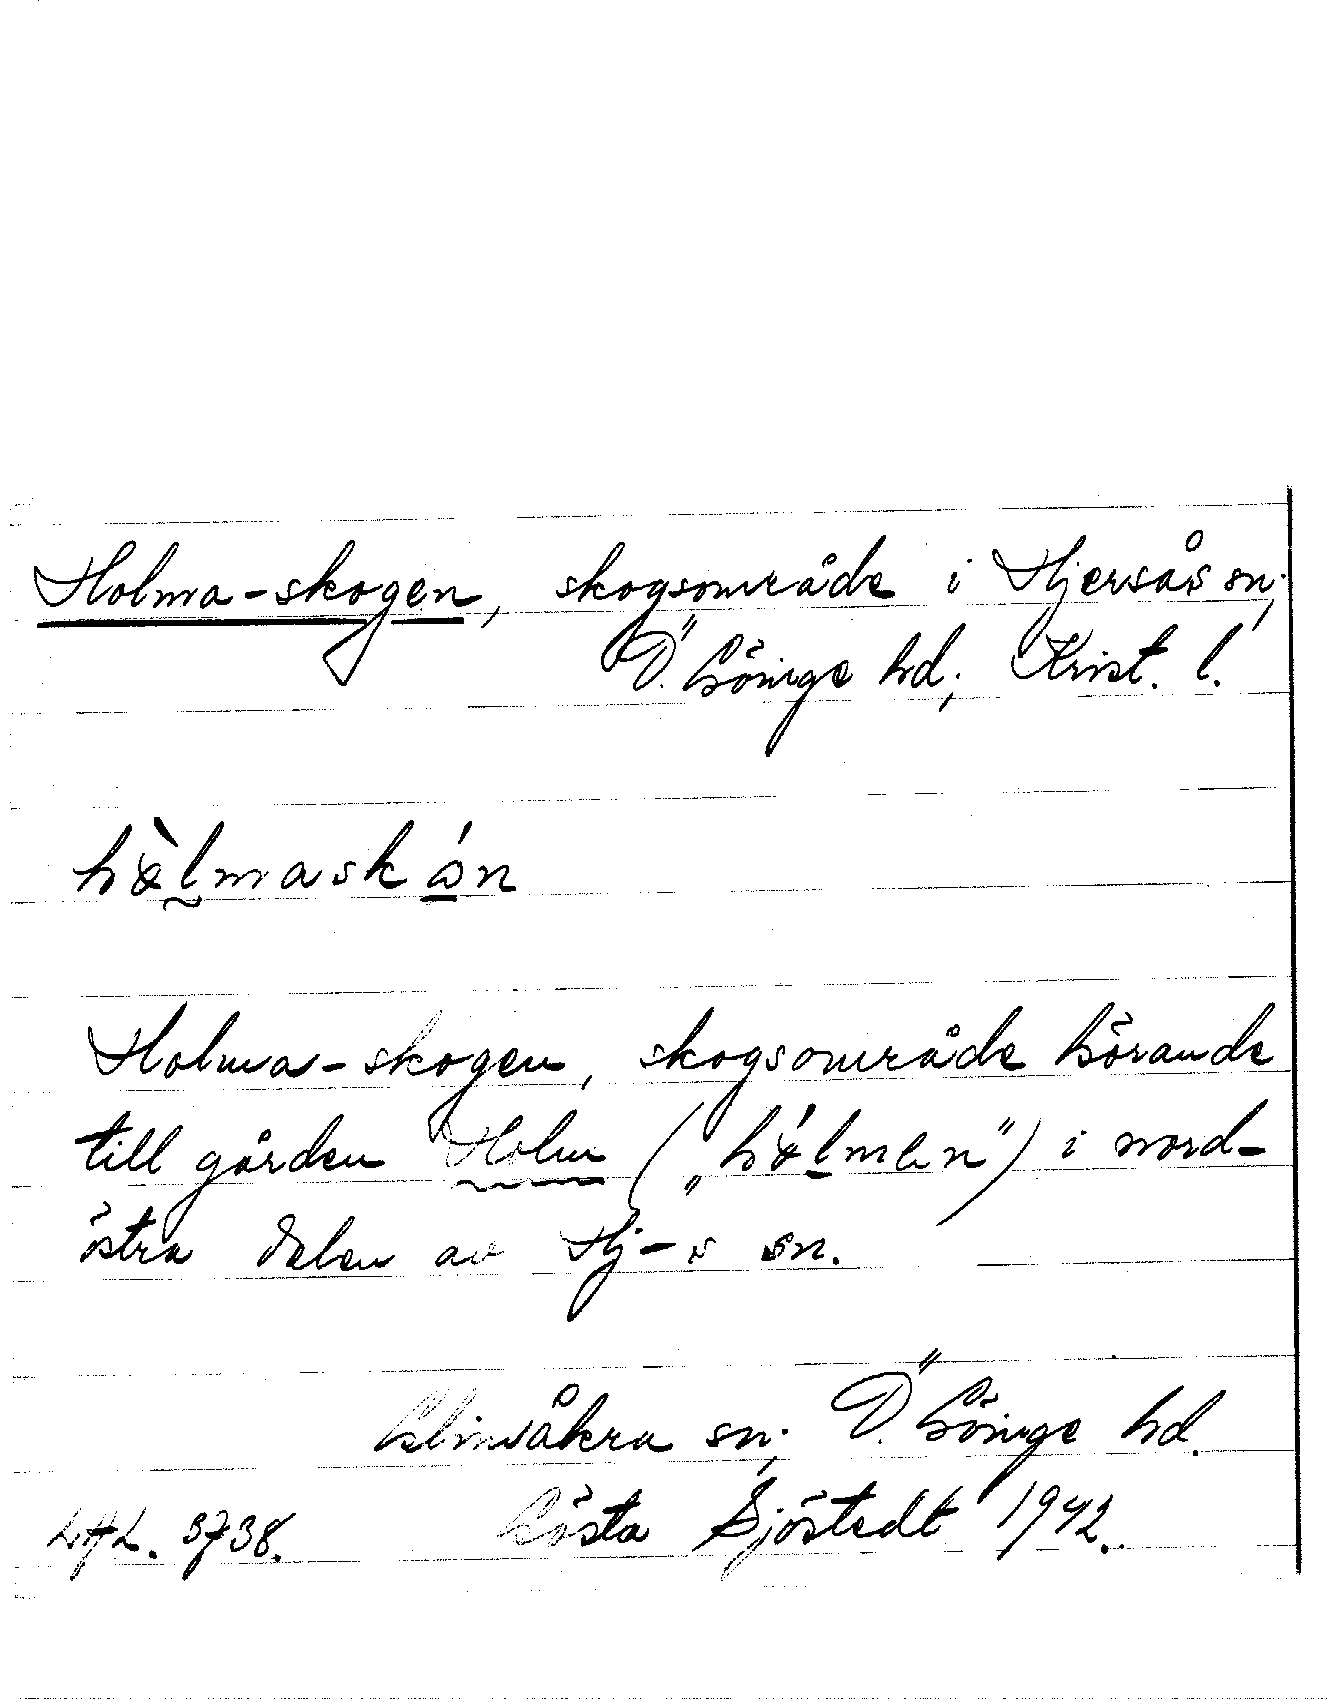 Holma-skogen, skogsområde i Hjersås sn;
Ö. Göinge hd; Krist. l.
hòlmaskón
Holma-skogen, skogsområde hörande
till gården Holm („hólmen”) i nord-
östra delen av Hj-s sn.
Glimåkra sn; Ö. Göinge hd.
LAL. 3738. Gösta Sjöstedt 1942.